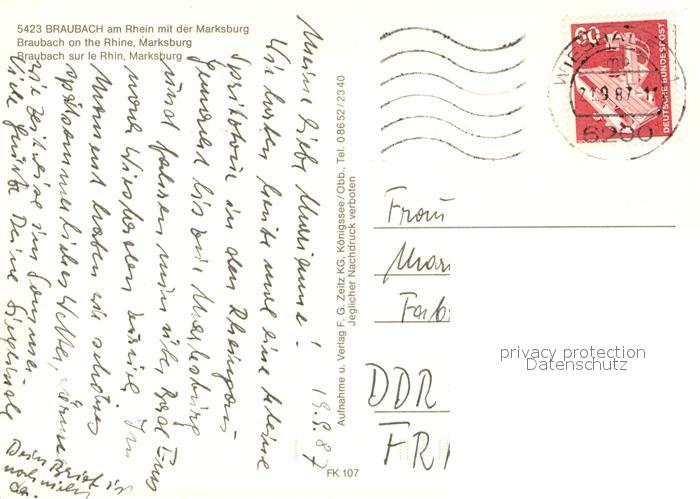 5423 BRAUBACH am Rhein mit der Marksburg
Braubach on the Rhine, Marksburg
Braubach sur le Rhin, Marksburg
Meine liebe Marianne!
19.9.87
Wir haben heute mal eine kleine
Spritztour in den Rheingau
gemacht bis zur Marksburg
und fahren nun über Bad Ems
nach Wiesbaden zurück. Im
Moment haben wir schönes
spätsommerliches Wetter,
wie zeitweise im Sommer
Viele Grüße Deine Sieglinde
Dein Brief ist
noch nicht
da.
Aufnahme u. Verlag F. G. Zeitz KG, Königssee/Obb., Tel. 08652/2340
Jeglicher Nachdruck verboten
FK 107
60
DEUTSCHE BUNDESPOST
WIESBADEN 1
mb
21.9.87-11
6200
Frau
Mar
Fab
DDR
FR
privacy protection
Datenschutz